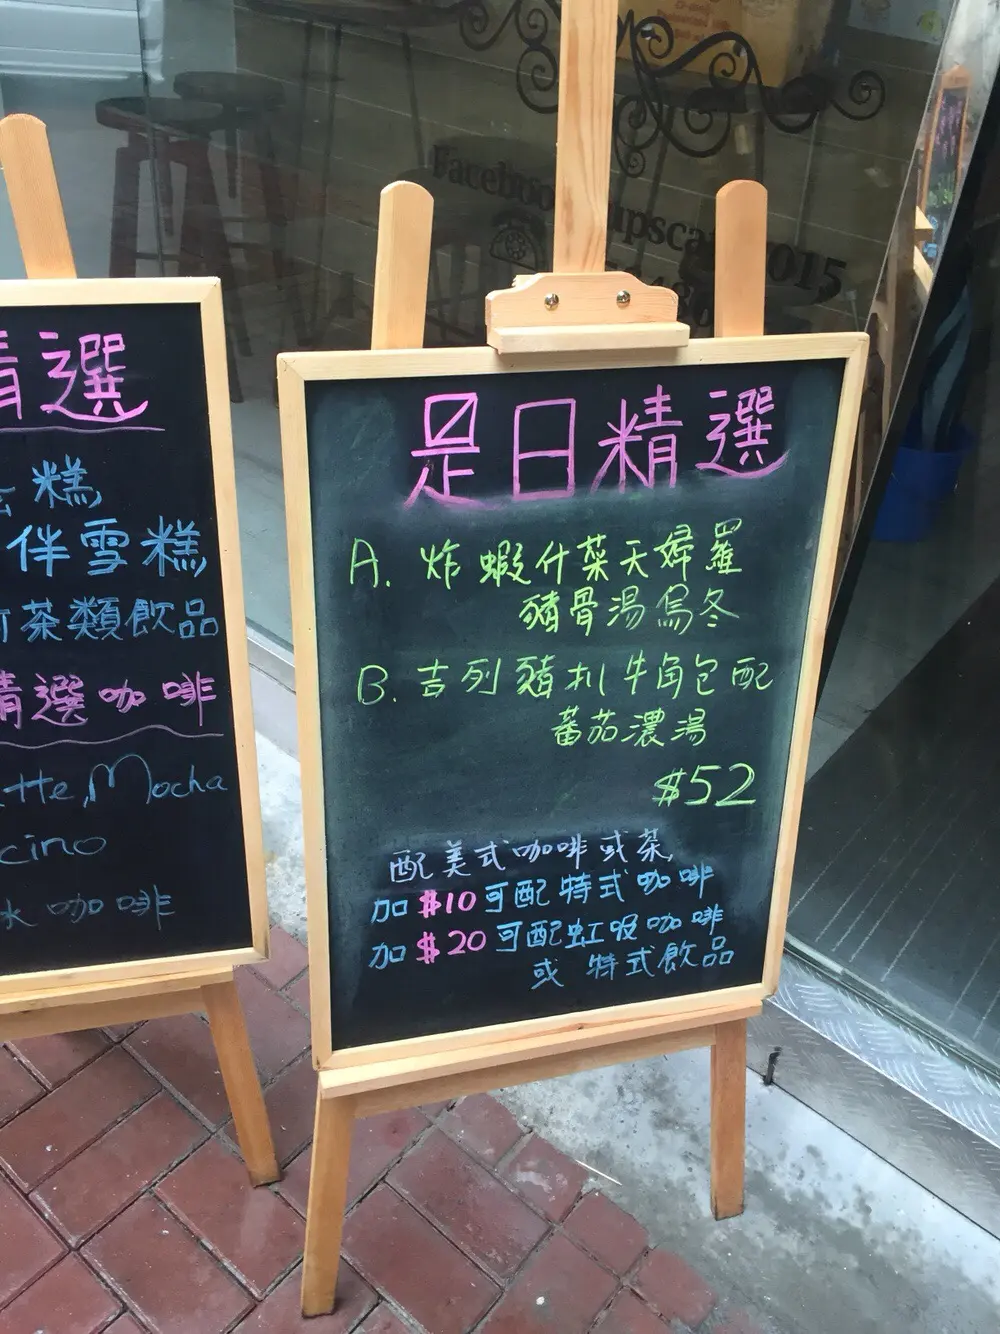 精選
糕
伴雪糕
茶類飲品
精選咖啡
tte, Mocha
cino
咖啡
是日精選
A. 炸蝦什菜天婦羅
豬骨湯烏冬
B. 吉列豬扒牛角包配
蕃茄濃湯
$52
配美式咖啡或茶
加$10可配特式咖啡
加$20可配虹吸咖啡
或特式飲品
Facebook
2015